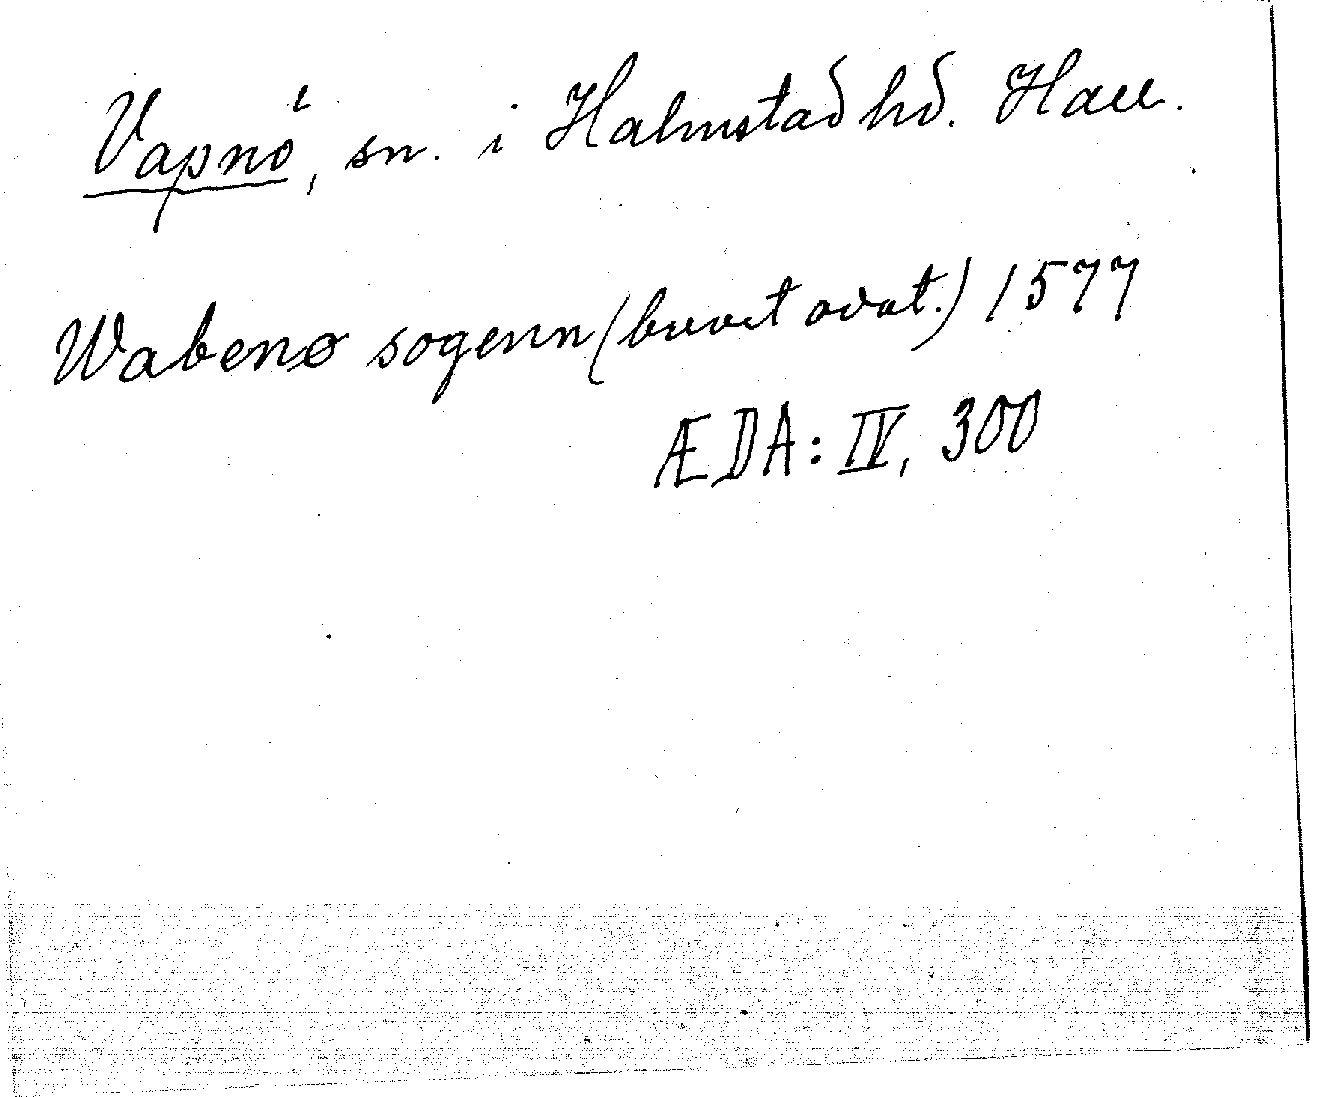 Vapnö, sn. i Halmstad hd. Hall.
Wabenø sogenn (brevet odat.) 1577
ÆDA: IV, 300